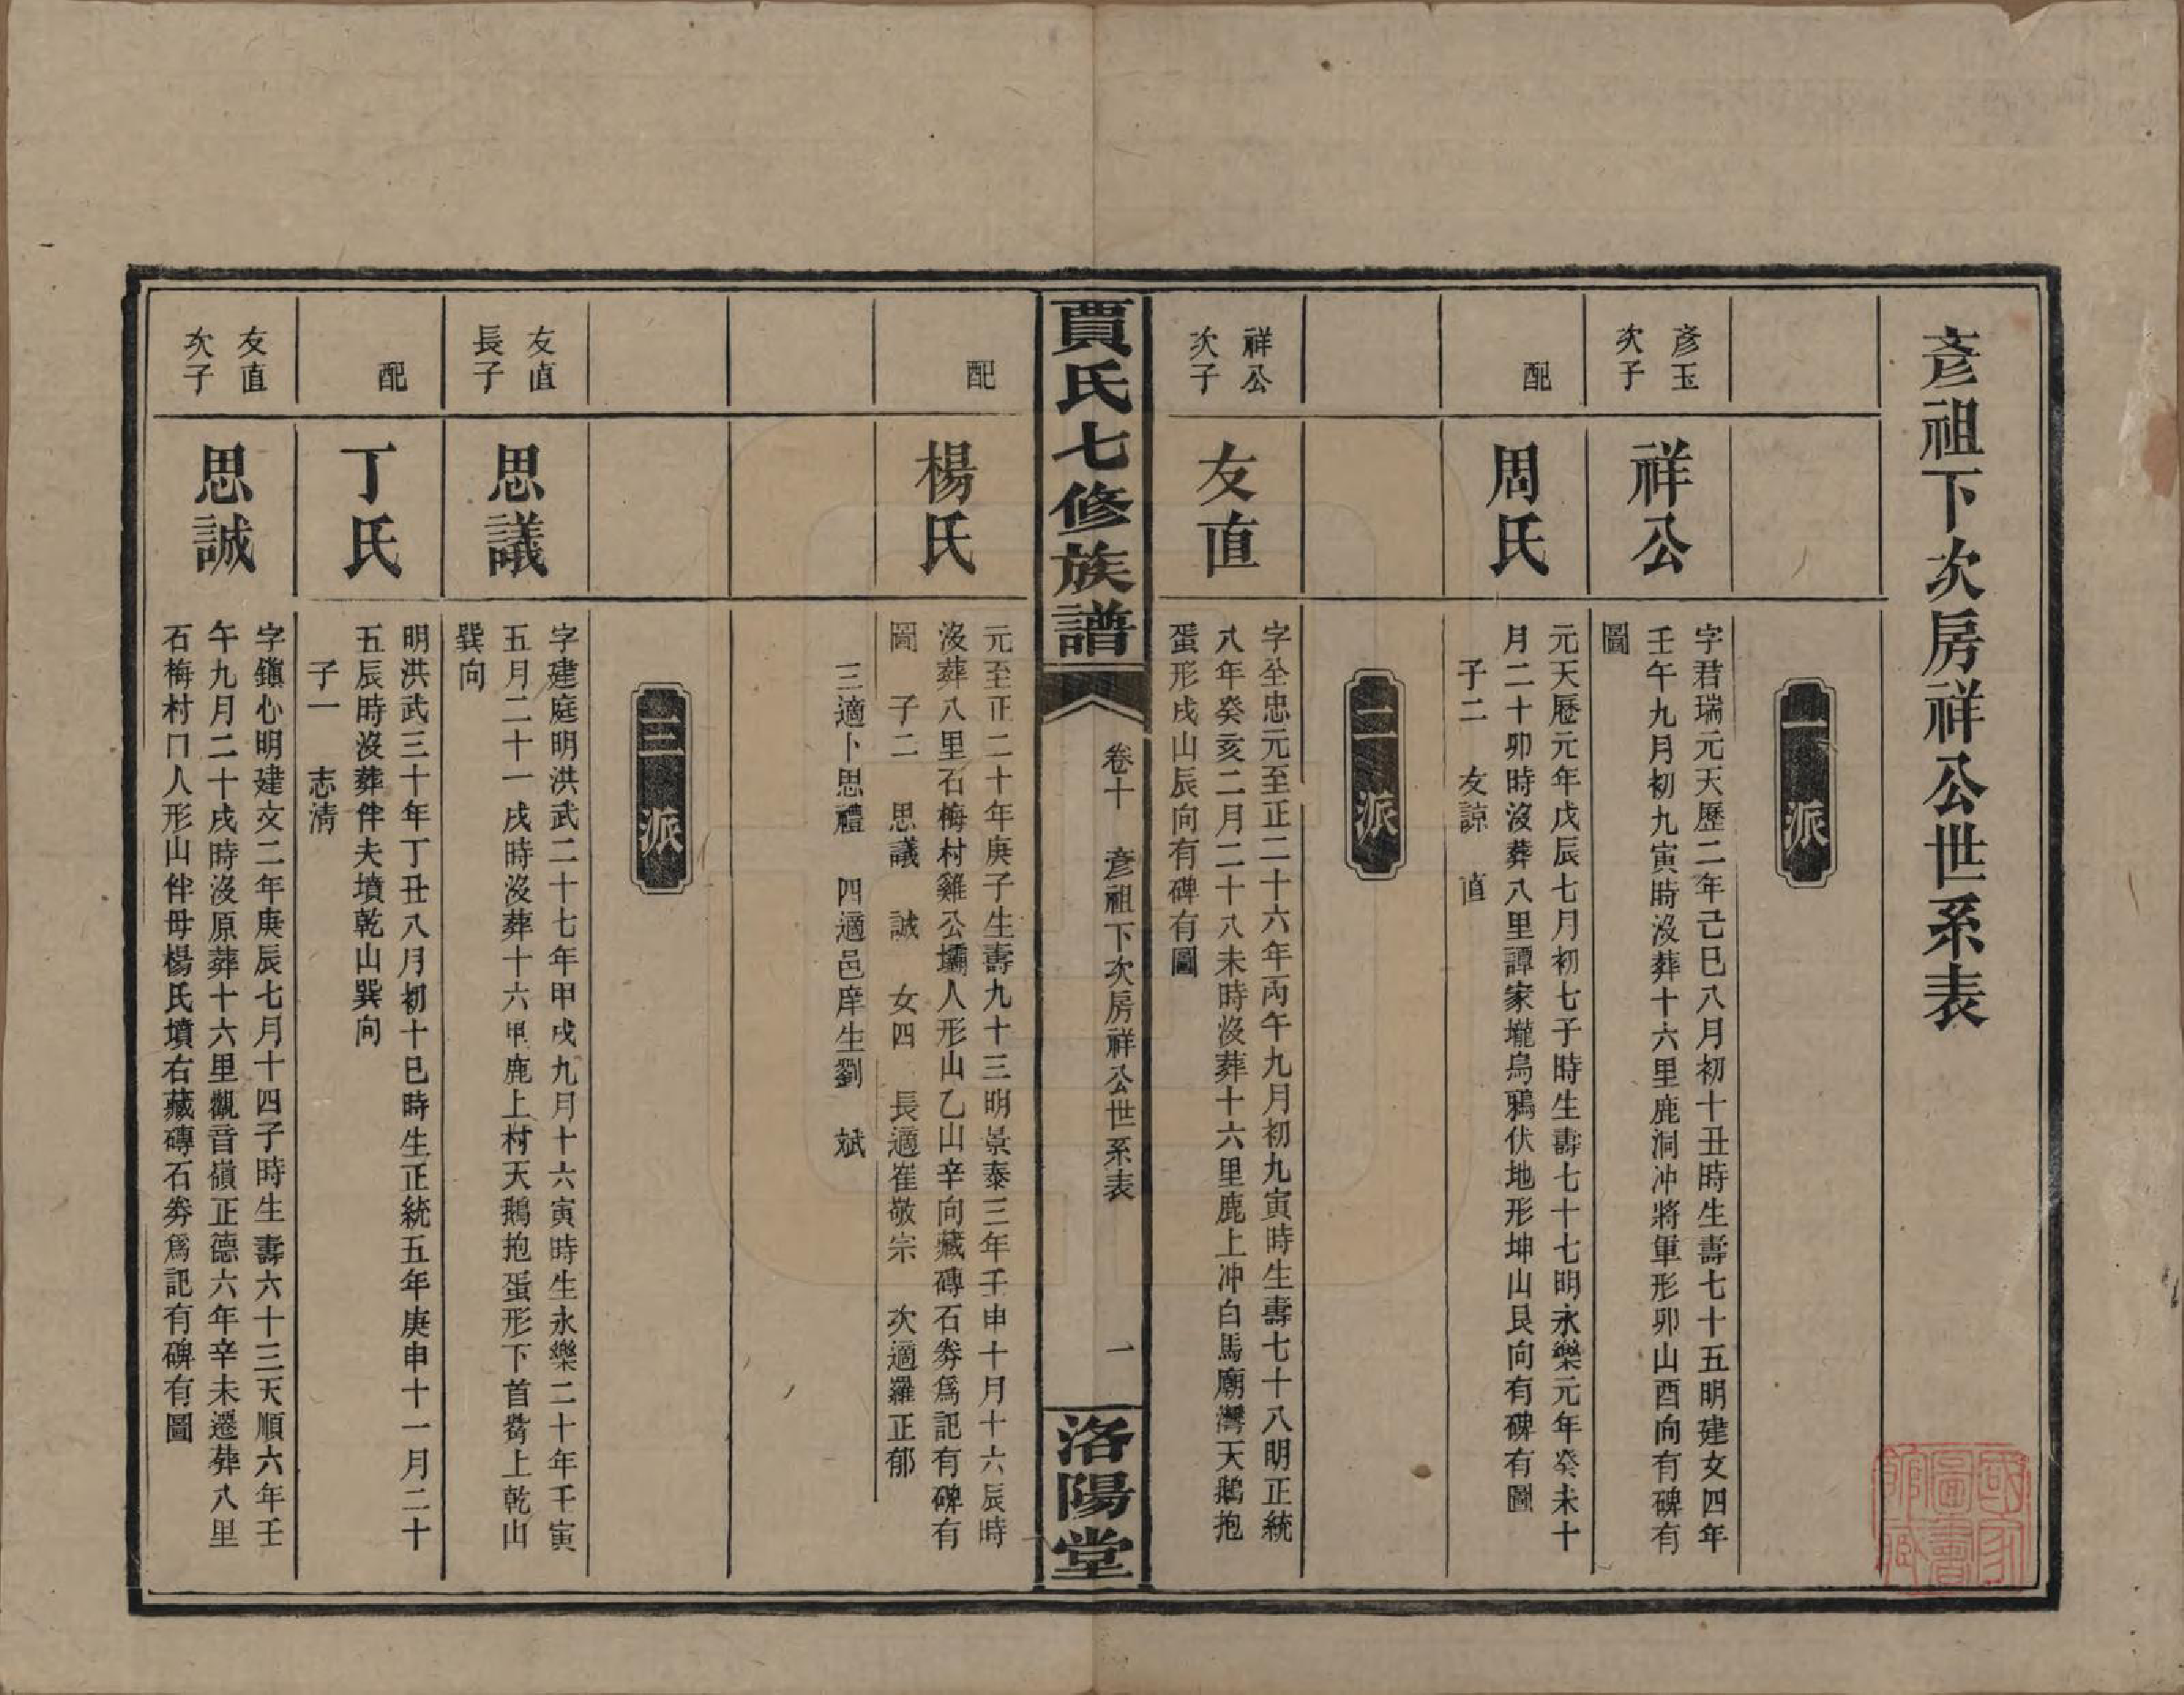 彥祖下次房祥公世系表
一派
彥玉
次子
祥公
字君瑞元天歷二年己巳八月初十丑時生壽七十五明建文四年
壬午九月初九寅時沒葬十六里鹿洞冲將軍形卯山酉向有碑有
圖
配
周氏
元天歷元年戊辰七月初七子時生壽七十七明永樂元年癸未十
月二十卯時沒葬八里譚家壠烏鴉伏地形坤山艮向有碑有圖
子二 友諒 直
二派
祥公
次子
友直
字全忠元至正二十六年丙午九月初九寅時生壽七十八明正統
八年癸亥二月二十八未時沒葬十六里鹿上冲白馬廟灣天鵝抱
蛋形戌山辰向有碑有圖
賈氏七修族譜
卷十 彥祖下次房祥公世系表 一
洛陽堂
配
楊氏
元至正二十年庚子生壽九十三明景泰三年壬申十月十六辰時
沒葬八里石梅村雞公壩人形山乙山辛向藏磚石劵爲記有碑有
圖 子二 思議 誠 女四 長適崔敬宗 次適羅正郁
三適卜思禮 四適邑庠生劉 斌
三派
友直
長子
思議
字建庭明洪武二十七年甲戌九月十六寅時生永樂二十年壬寅
五月二十一戌時沒葬十六甲鹿上村天鵝抱蛋形下首觜上乾山
巽向
配
丁氏
明洪武三十年丁丑八月初十巳時生正統五年庚申十一月二十
五辰時沒葬伴夫墳乾山巽向
子一 志清
友直
次子
思誠
字鎮心明建文二年庚辰七月十四子時生壽六十三天順六年壬
午九月二十戌時沒原葬十六里觀音嶺正德六年辛未遷葬八里
石梅村口人形山伴母楊氏墳右藏磚石劵爲記有碑有圖
國家
圖書
館藏